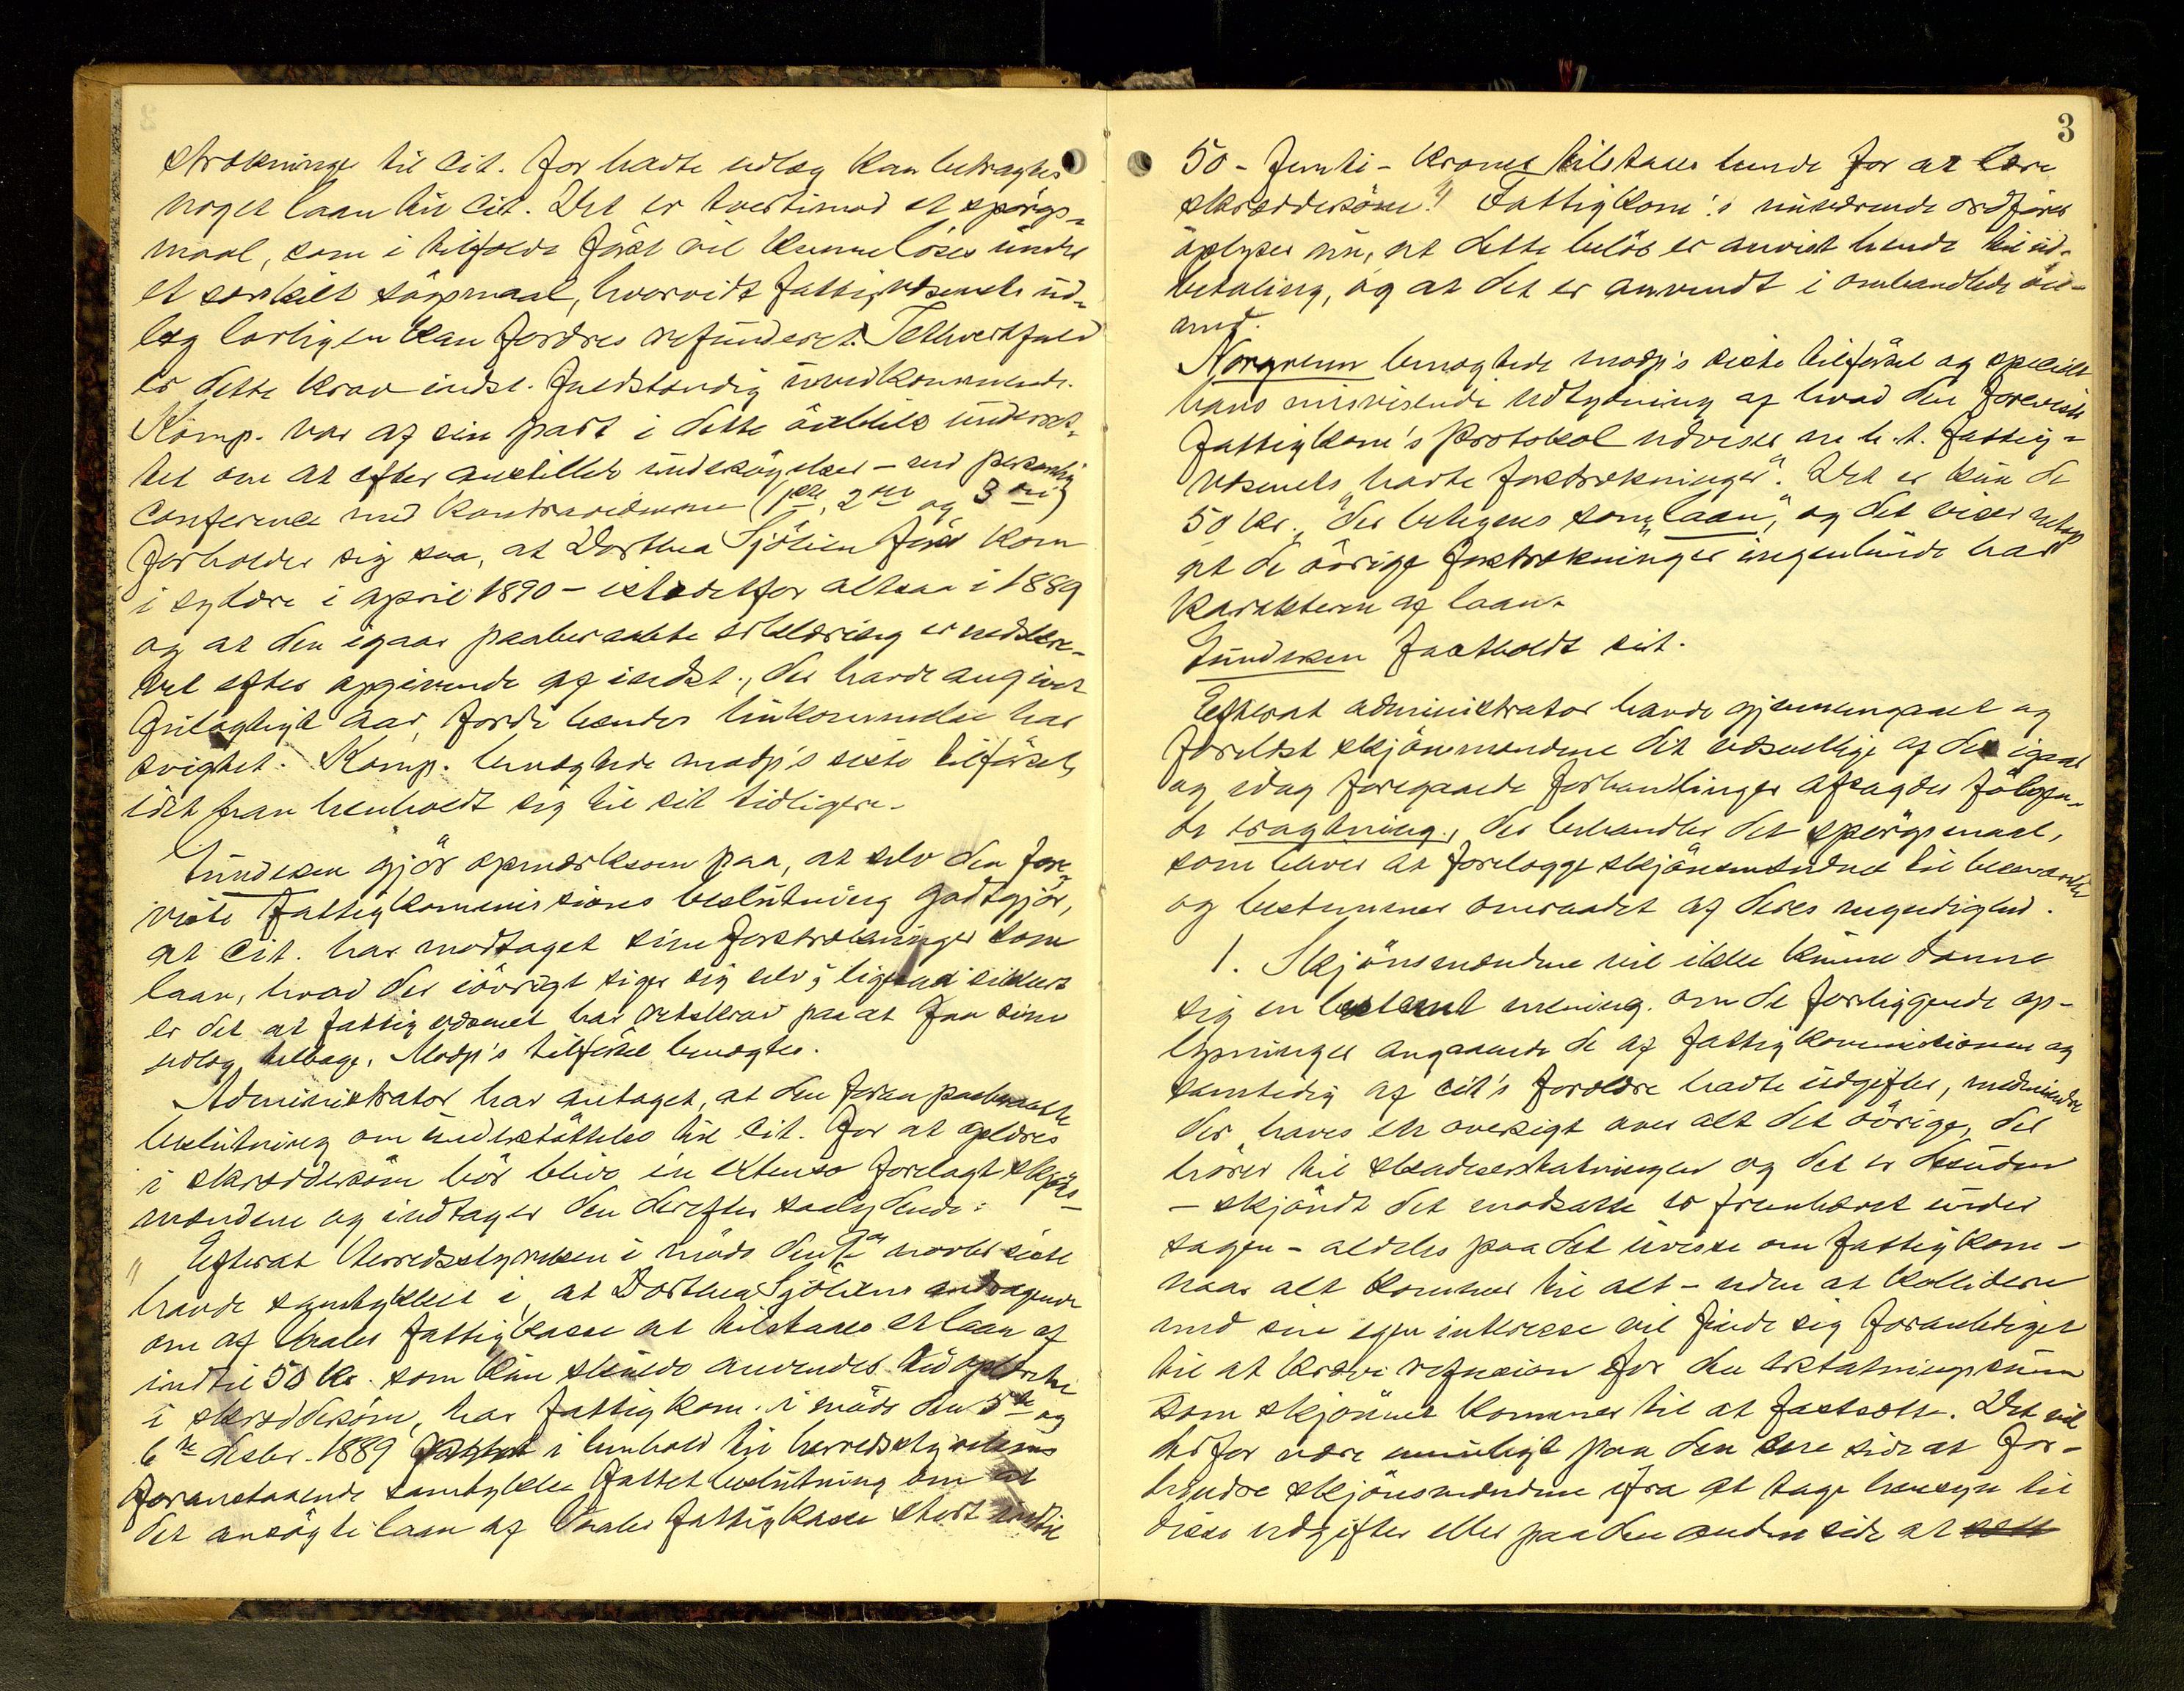 strækninge til Cit. for hadte udlæg kan betragtes
noget laan til Cit. Det er tvertimod et spörgs-
maal, som i tilfælde förct vil kunne löses under
et særskilt sögsmaal, hvorvidt fattigvæsenets ud-
læg lovligen kan fordres refunderet. I ethvertfald
er dette krav indst. fuldstændig uvedkommende.
Komp. var af sin part i dette öieblik underret-
tet om at efter anstillede undersögelser – ved personlig
conference med kontravidnerne (1ste, 2det og 3die)
forholder sig saa, at Dorthea Sjölien först kom
i sylære i april 1890 – istedetfor altsaa i 1889
og at den igaar paaberaabte erklæring er nedskre-
vet efter opgivende af indst., der havde angivet
feilagtigt aar, fordi hendes hukommelse har
svigtet. Komp. benægtede modp's sidste tilförsel,
idet han henholdt sig til sit tidligere.
Gundersen gjör opmærksom paa, at selv den fore-
viste fattigkommissions beslutning godtgjör,
at Cit. har modtaget sine forstrækninger som
laan, hvad der iövrigt siger sig selv; ligesaa sikkert
er det at fattigvæsenet har retskrav paa at faa sine
udlæg tilbage. Modp's tilförsel benægtes.
Administrator har antaget, at den foran paaberaabte
beslutning om understöttelse til Cit. for at oplæres
i skræddersöm bör blive in extenso forelagt skjöns-
mændene og indtages den derefter saalydende:
" Efterat Herredsstyrelsen i möde den 7de novbr sidste
havde samtykket i, at Dorthea Sjöliens andragende
om af Vaaler fattigkasse at tilstaaes et laan af
indtil 50 Kr. som kun skulde anvendes til oplærelse
i skræddersöm, har fattigkom. i möde den 5te og
6te decbr. 1889 i henhold til herredsstyrelsens
foranstaaende samtykke fattet beslutning om at
det ansögte laan af Vaaler fattigkasse stort indtil
3
50 - femti - Kroner tilstaaes hende for at lære
skræddersöm." Fattigkom's nuværende ordförer
oplyser nu, at dette belöb er anvist hende til ud-
betaling, og at det er anvendt i omhandlede öie-
med.
Norgrenn benægtede modp's sidste tilförsel og specielt
hans misvisende udtydning af hvad den foreviste
fattigkom's protokol udviser m. h. t. fattig-
væsenets "havte forstrækninger". Det er kun de
50 Kr., der betegnes som "laan", og det viser netop
at de övrige forstrækninger ingenlunde har
karakteren af laan.
Gundersen fastholdt sit.
Efterat administrator havde gjennemgaaet og
forelæst skjönsmændene det væsentlige af de igaar
og idag foregaaede forhandlinger afsagdes fölgen-
de eragtning, der behandler det spörgsmaal,
som bliver at forelægge skjönsmændene til besvarelse
og bestemmer omraadet af deres myndighed.
1. Skjönsmændene vil ikke kunne danne
sig en bestemt mening om de foreliggende op-
lysninger angaaende de af fattigkommissionen og
samtidig af Cit's forældre hadte udgifter, medmindre
der haves en oversigt over alt det övrige, der
hörer til skadeserstatningen og det er desuden
– skjöndt det modsatte er fremhævet under
sagen – aldeles paa det uvisse om fattigkom –
naar alt kommer til alt – uden at kollidere
med sin egen interesse vil finde sig foranlediget
til at kræve refusion for den erstatningssum
som skjönnet kommer til at fastsætte. Det vil
derfor være umuligt paa den ene side at for-
hindre skjönsmændene ifra at tage hensyn til
disse udgifter eller paa den anden side at